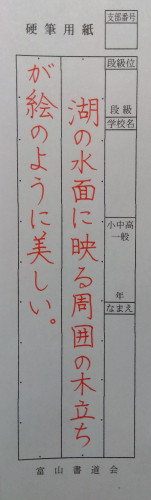 硬筆用紙
支部番号
段級位
段級
学校名
小中高
一般
年
なまえ
湖の水面に映る周囲の木立ち
が絵のように美しい。
富山書道会